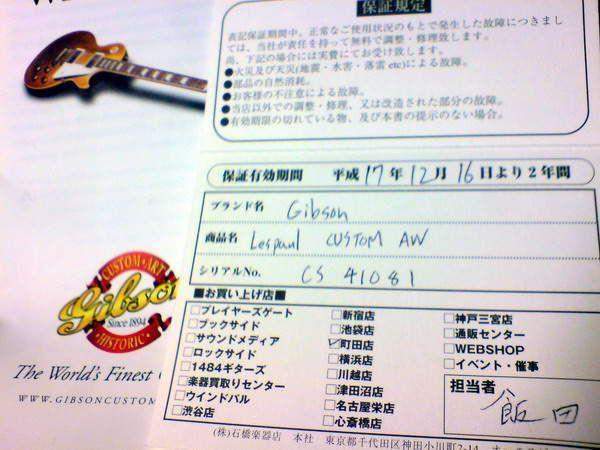 保証規定
表記保証期間中、正常なご使用状況のもとで発生した故障につきまし
ては、当社が責任を持って無料で調整・修理致します。
尚、下記の場合には実費にてお受け致します。
●火災及び天災(地震・水害・落雷 etc)による故障。
●部品の自然消耗。
●お客様の不注意による故障。
●当店以外での調整・修理、又は改造された部分の故障。
●有効期限の切れている物、及び本書の提示のない場合。
保証有効期間 平成 17 年 12 月 16 日より2年間
ブランド名 Gibson
商品名 Lespaul CUSTOM AW
シリアルNo. CS 41081
■お買い上げ店■
□プレイヤーズゲート
□ブックサイド
□サウンドメディア
□ロックサイド
□1484ギターズ
□楽器買取りセンター
□ウインドパル
□渋谷店
□新宿店
□池袋店
☑町田店
□横浜店
□川越店
□津田沼店
□名古屋栄店
□心斎橋店
□神戸三宮店
□通販センター
□WEBSHOP
□イベント・催事
担当者
飯田
(株)石橋楽器店 本社 東京都千代田区神田小川町2-14
CUSTOM · ART
Gibson
Since 1894
HISTORIC
The World's Finest
WWW.GIBSONCUSTOM